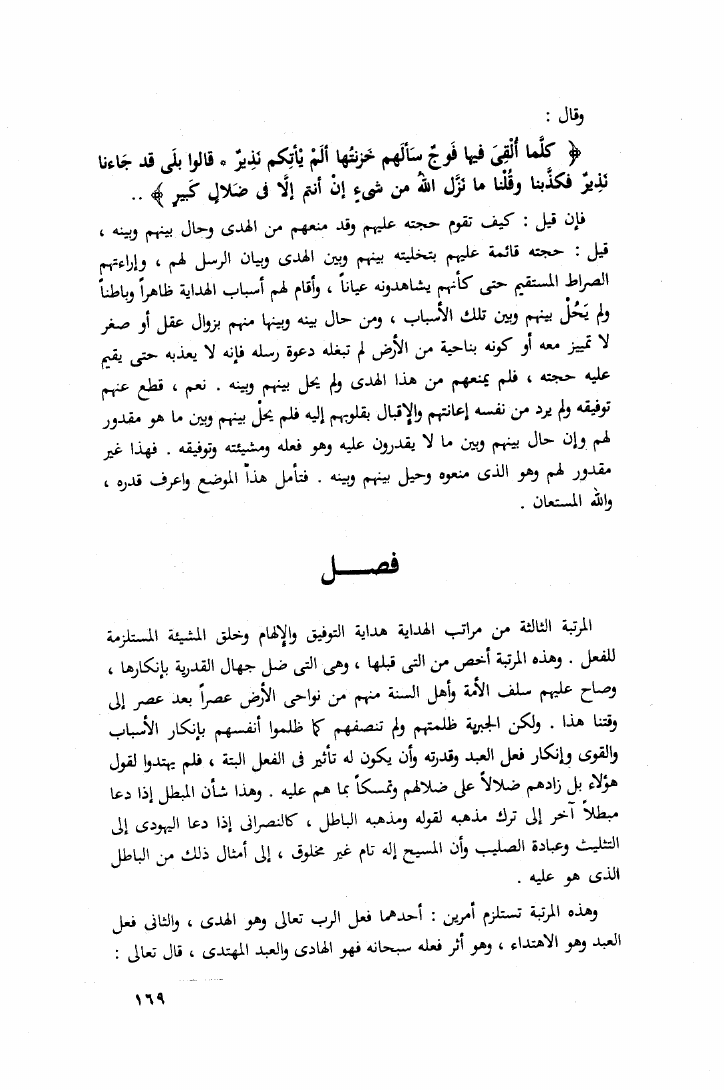 وقال :
﴿ كلَّما أُلْقِىَ فيها فَوجٌ سَألَهم خَزنتُها ألَمْ يْأتِكم نَذِيرٌ * قالوا بلَى قد جَاءنا
نَذِيرٌ فكذَّبنا وقُلْنا ما نَزَّل اللهُ من شىءٍ إنْ أنتم إلَّا فى ضَلالٍ كَبيرٍ ﴾ ..
فإن قيل : كيف تقوم حجته عليهم وقد منعهم من الهدى وحال بينهم وبينه ،
قيل : حجته قائمة عليهم بتخليته بينهم وبين الهدى وبيان الرسل لهم ، وإراءتهم
الصراط المستقيم حتى كأنهم يشاهدونه عياناً ، وأقام لهم أسباب الهداية ظاهراً وباطناً
ولم يَحُلْ بينهم وبين تلك الأسباب ، ومن حال بينه وبينها منهم بزوال عقل أو صغر
لا تمييز معه أو كونه بناحية من الأرض لم تبغله دعوة رسله فإنه لا يعذبه حتى يقيم
عليه حجته ، فلم يمنعهم من هذا الهدى ولم يحل بينهم وبينه . نعم ، قطع عنهم
توفيقه ولم يرد من نفسه إعانتهم والإقبال بقلوبهم إليه فلم يحلْ بينهم وبين ما هو مقدور
لهم وإن حال بينهم وبين ما لا يقدرون عليه وهو فعله ومشيئته وتوفيقه . فهذا غير
مقدور لهم وهو الذى منعوه وحيل بينهم وبينه . فتأمل هذا الموضع واعرف قدره ،
والله المستعان .
فصـــل
المرتبة الثالثة من مراتب الهداية هداية التوفيق والإلهام وخلق المشيئة المستلزمة
للفعل . وهذه المرتبة أخص من التى قبلها ، وهى التى ضل جهال القدرية بإنكارها ،
وصاح عليهم سلف الأمة وأهل السنة منهم من نواحى الأرض عصراً بعد عصر إلى
وقتنا هذا . ولكن الجبرية ظلمتهم ولم تنصفهم كما ظلموا أنفسهم بإنكار الأسباب
والقوى وإنكار فعل العبد وقدرته وأن يكون له تأثير فى الفعل البتة ، فلم يهتدوا لقول
هؤلاء بل زادهم ضلالاً على ضلالهم وتمسكاً بما هم عليه . وهذا شأن المبطل إذا دعا
مبطلاً آخر إلى ترك مذهبه لقوله ومذهبه الباطل ، كالنصرانى إذا دعا اليهودى إلى
التثليث وعبادة الصليب وأن المسيح إله تام غير مخلوق ، إلى أمثال ذلك من الباطل
الذى هو عليه .
وهذه المرتبة تستلزم أمرين : أحدهما فعل الرب تعالى وهو الهدى ، والثانى فعل
العبد وهو الاهتداء ، وهو أثر فعله سبحانه فهو الهادى والعبد المهتدى ، قال تعالى :
١٦٩